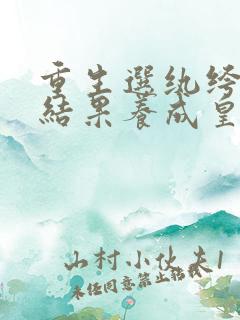 重生選纨绔
結果養成皇
山村小伙夫1
未经同意禁止转载